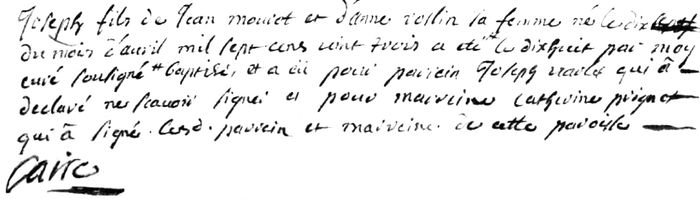 Joseph fils de Jean mouiet et d'anne rollin sa femme né le dix
du mois d'avril mil sept cens vint trois a eté le dixhuit par moy
curé souligné baptisé, et a eu pour parein Joseph qui à
declaré ne scavoir signer et pour mareine catherine prignot
qui à signé. lesd. parein et mareine de cette paroisse